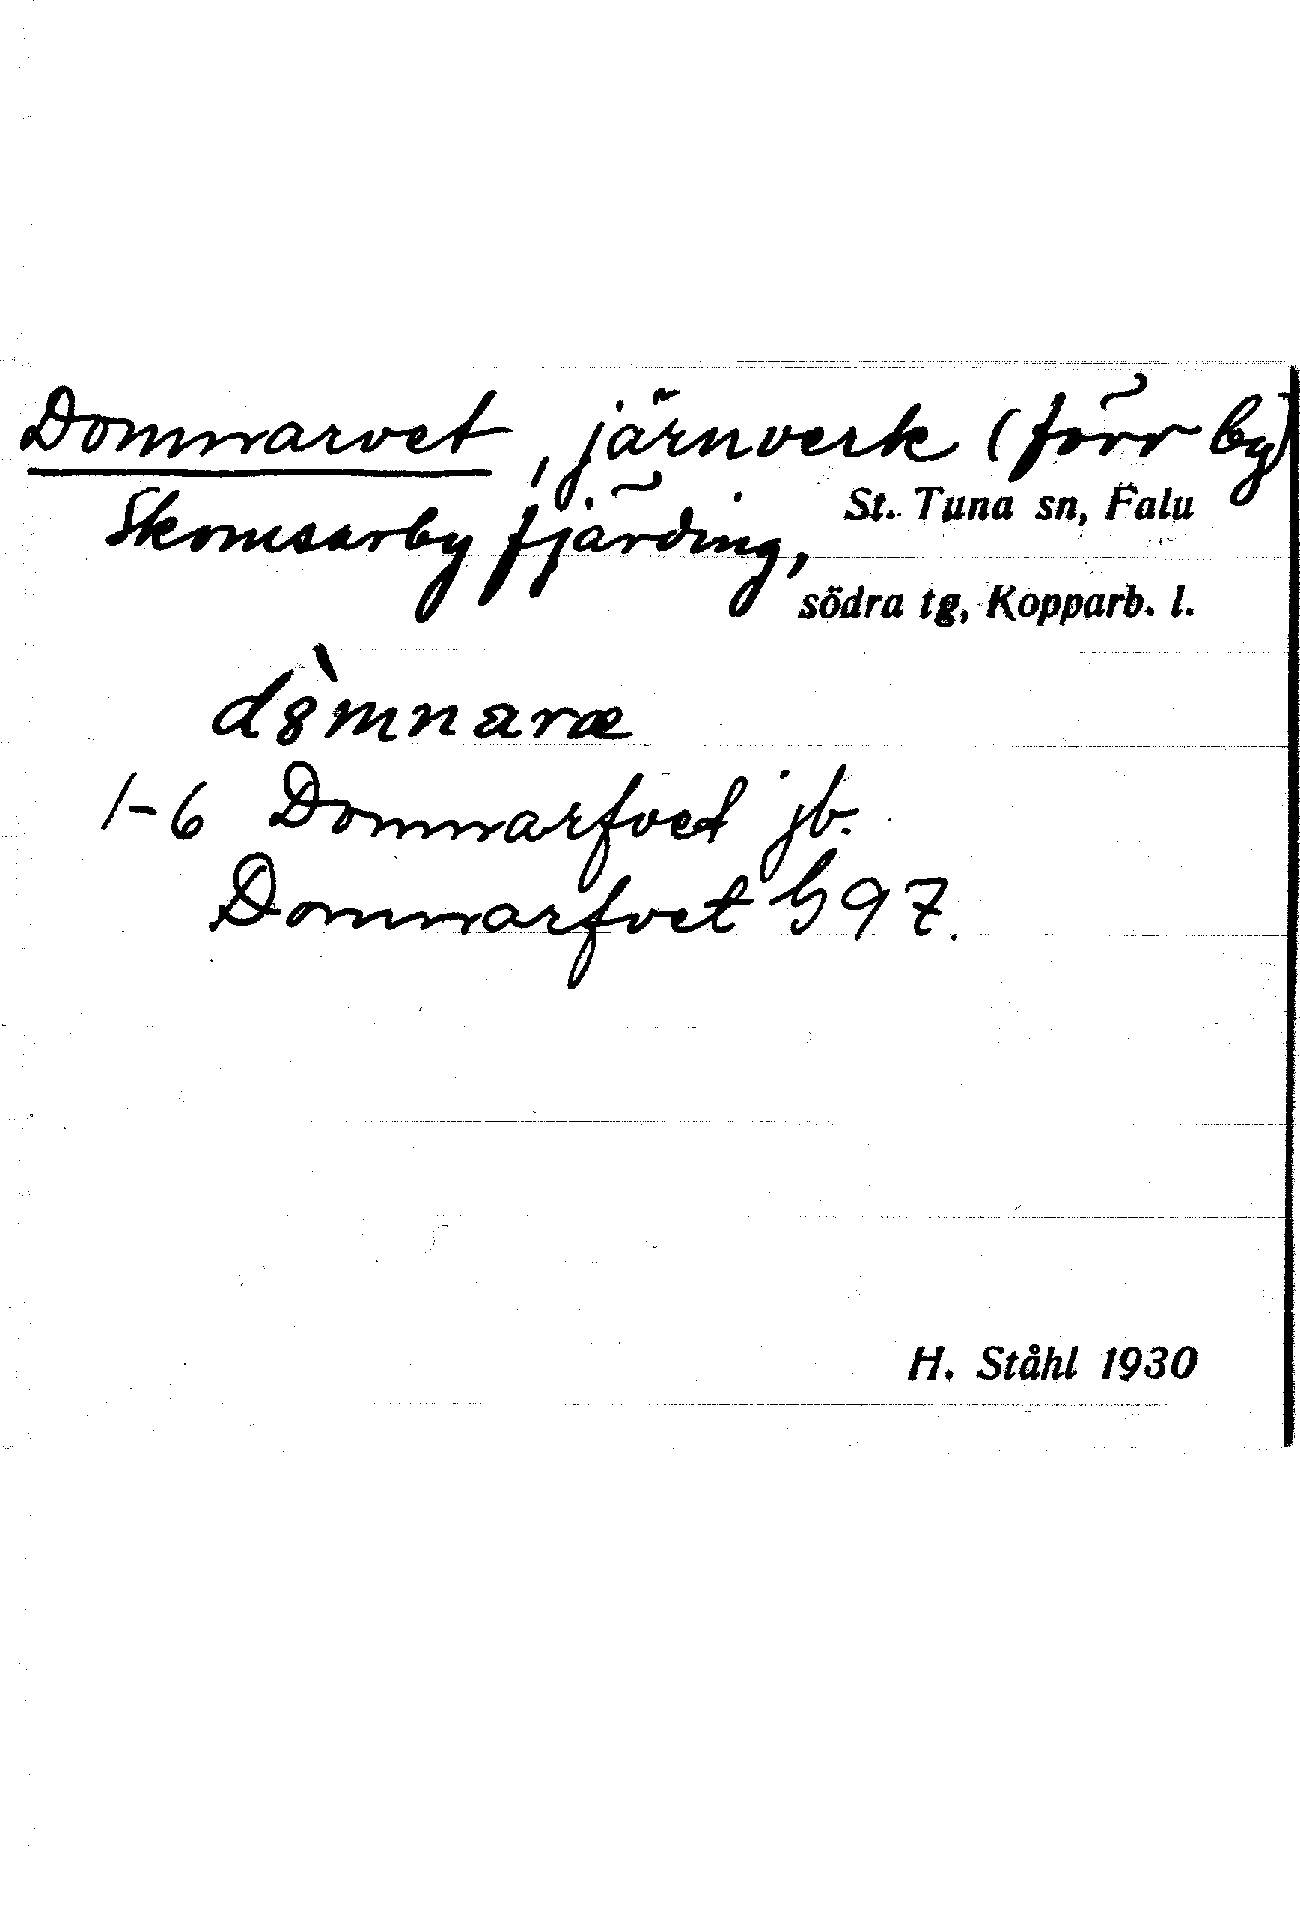 Domnarvet, järnverk (förr by)
St. Tuna sn, Falu
Skomsarby fjärding,
södra tg, Kopparb. l.
dòmnaræ
1-6 Domnarfvet jb.
Domnarfvet G 97.
H. Ståhl 1930